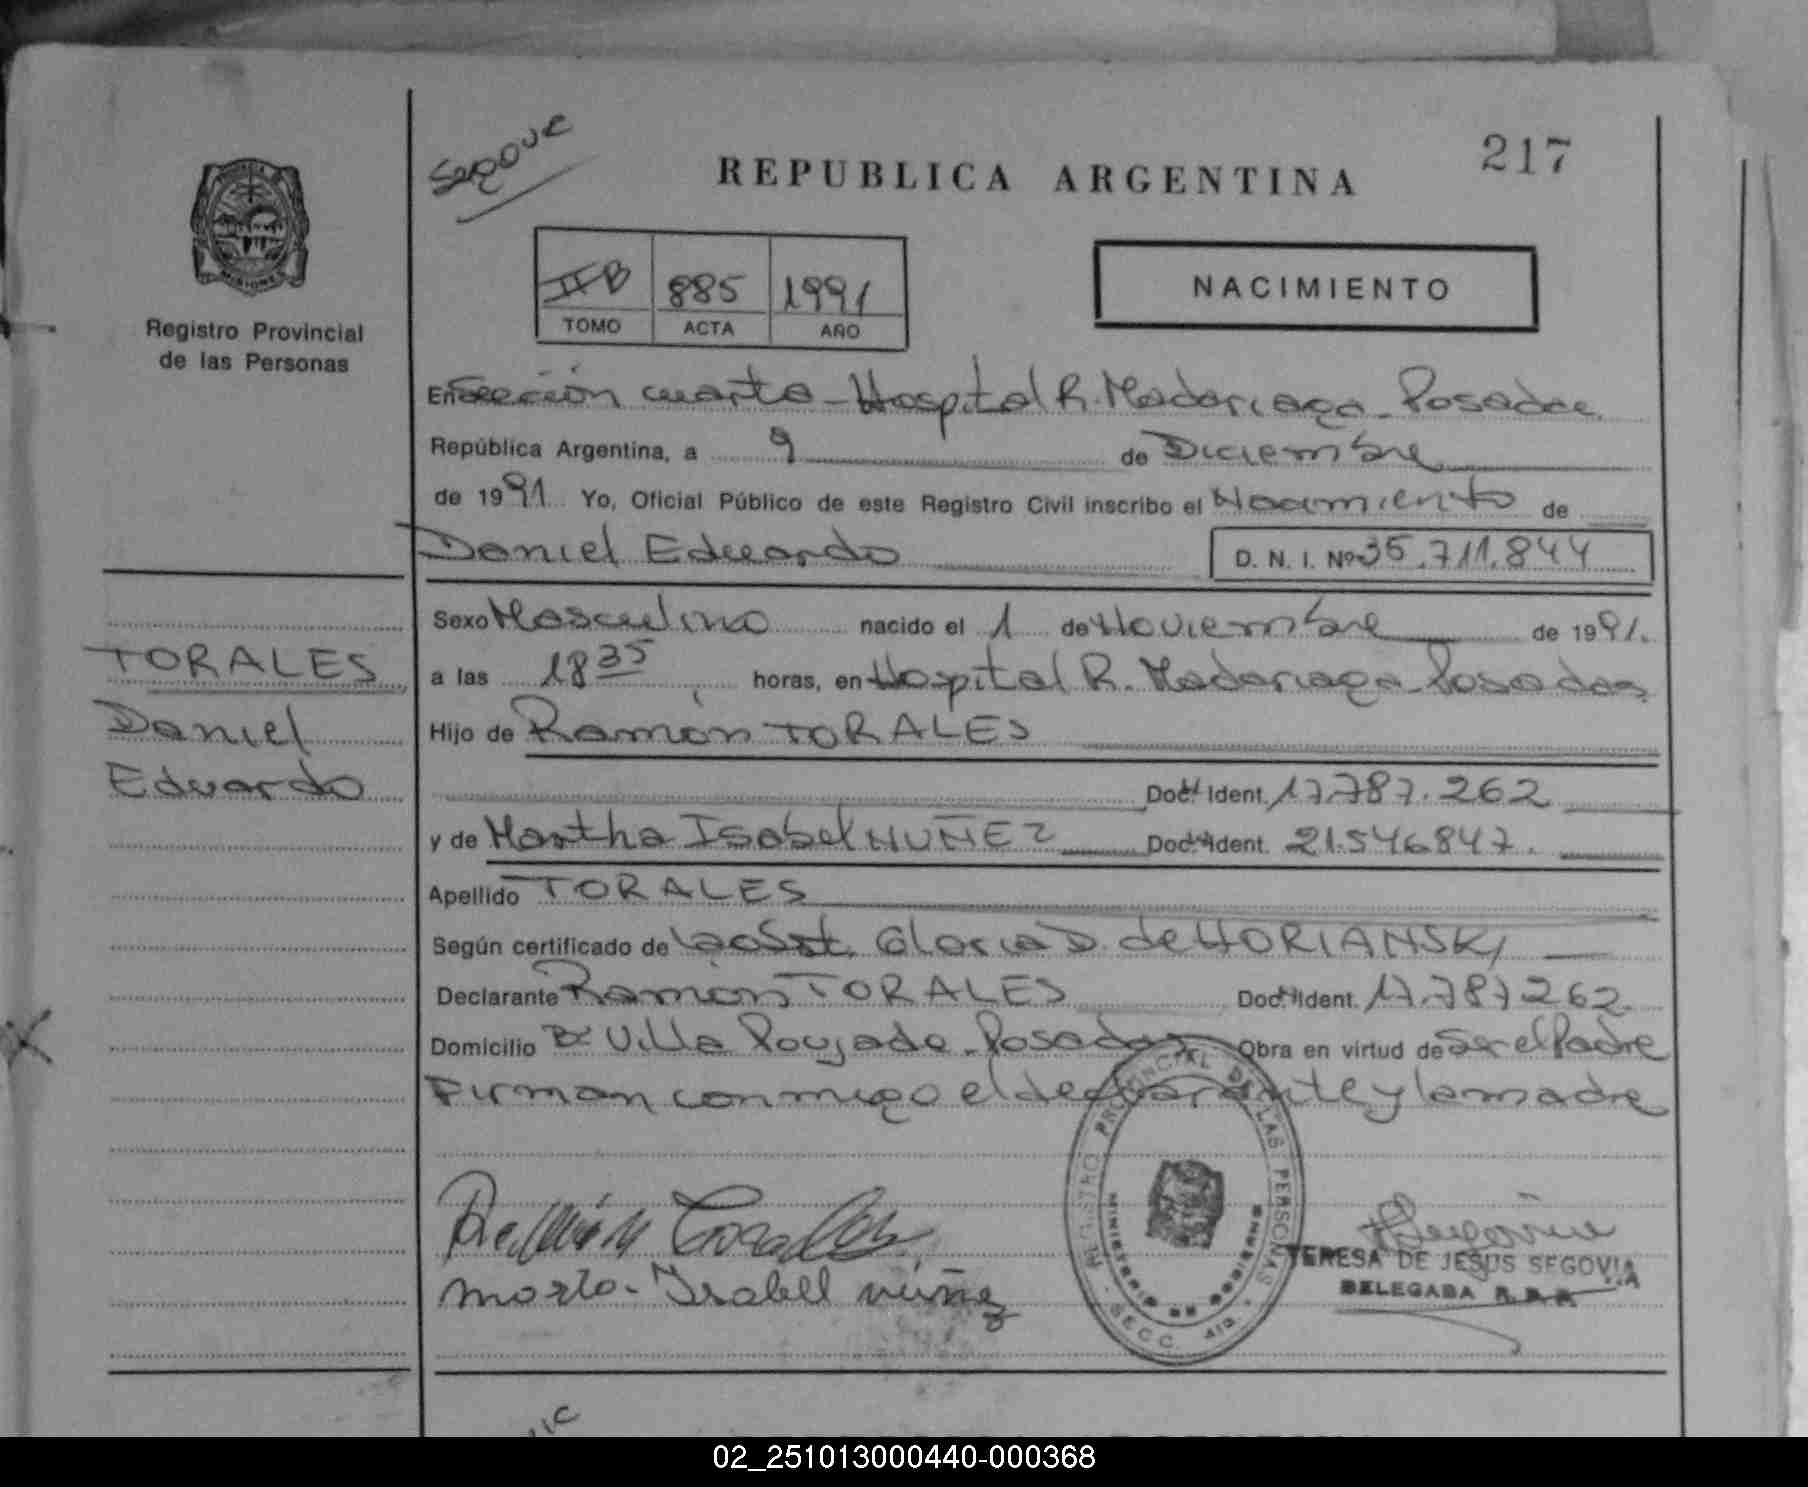 Segove
REPUBLICA ARGENTINA
217
IIB 885 1991
TOMO ACTA AÑO
NACIMIENTO
MISIONES
Registro Provincial
de las Personas
En Sección cuarta - Hospital R. Madariaga - Posadas
República Argentina, a 9 de Diciembre
de 1991 Yo, Oficial Público de este Registro Civil inscribo el Nacimiento de
Daniel Eduardo D. N. I. Nº 35.711.844
Sexo Masculino nacido el 1 de Noviembre de 1991.
a las 18 35 horas, en Hospital R. Madariaga - Posadas
Hijo de Ramón TORALES
Doc. Ident. 17.787.262
y de Martha Isabel NUÑEZ Doc. Ident. 21.546847.
Apellido TORALES
Según certificado de la Obst. Gloria D. de HORIANSKI
Declarante Ramón TORALES Doc. Ident. 17.787262.
Domicilio Bº Villa Poujade - Posadas Obra en virtud de Ser el Padre
Firman conmigo el declarante y la madre
TORALES
Daniel
Eduardo
Ramón Torales
marta - Isabell nuñez
REGISTRO PROVINCIAL DE LAS PERSONAS
MINISTERIO DE GOBIERNO
SECC. 4ta.
Segovia
TERESA DE JESUS SEGOVIA
DELEGADA
02_251013000440-000368